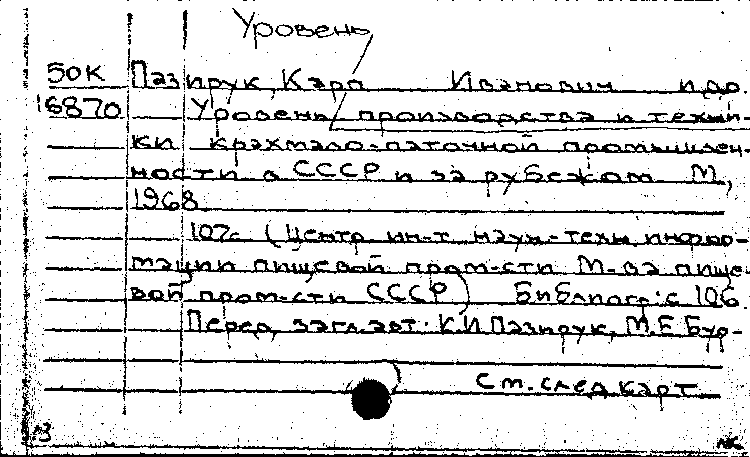 Уровень
50К Пазирук, Карп Иванович и др.
16870 Уровень производства и техни-
ки крахмало-паточной промышлен-
ности в СССР и за рубежом. М.,
1968
107с. (Центр. ин-т науч.-техн. инфор-
мации пищевой пром-сти М-ва пище-
вой пром-сти СССР) Библиогр: с 106
Перед загл. авт: К.И. Пазирук, М.Е. Бур-
См. след карт